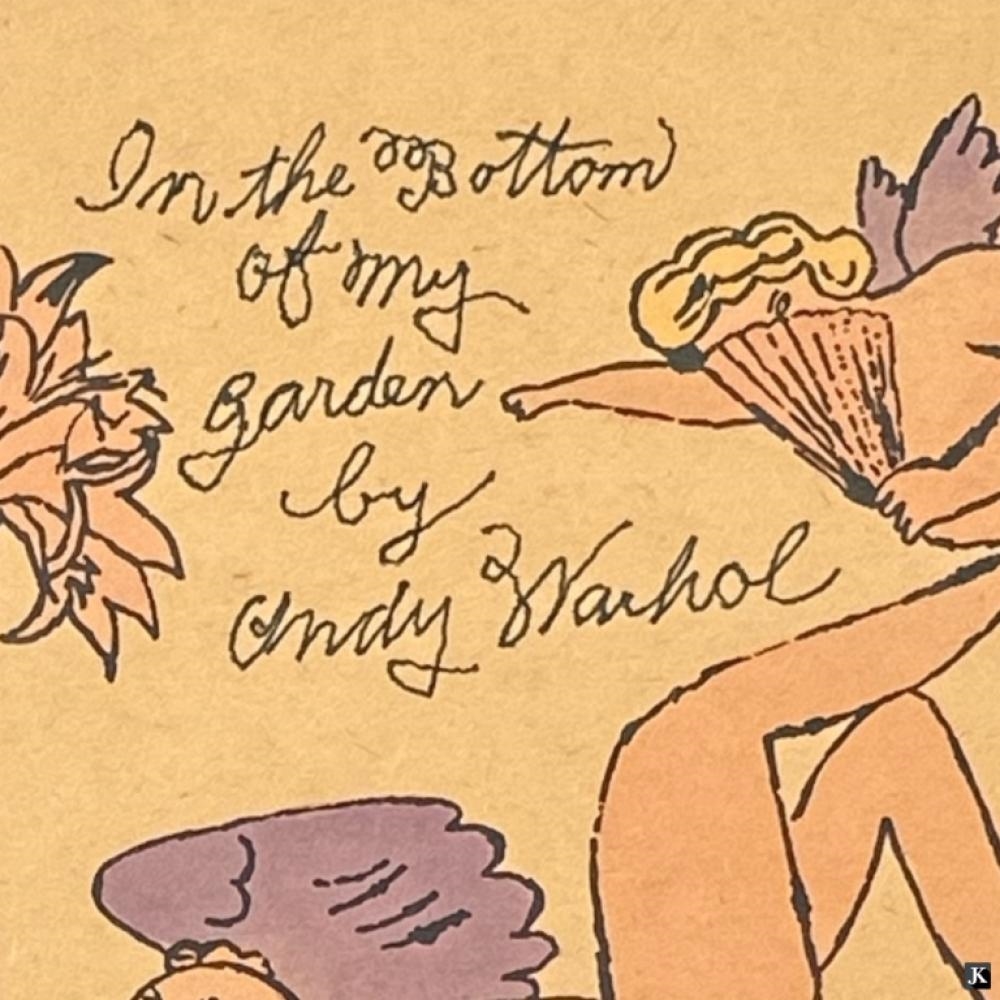 In the Bottom
of my
garden
by
Andy Warhol
JK